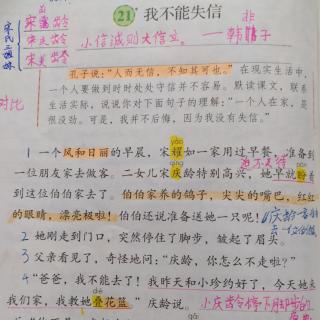 宋氏三姐妹
宋蔼龄
宋庆龄
宋美龄
21 我不能失信
小信诚则大信立。——韩非子
孔子说:“人而无信,不知其可也。”在现实生活中,
一个人要做到时时处处守信并不容易。默读课文,联系
生活实际,说说你对下面句子的理解:“一个人在家,是
很没劲。可是,我并不后悔,因为我没有失信。”
对比
1 一个风和日丽的早晨,宋耀如一家用过早餐,准备到
yào
一位朋友家去做客。二女儿宋庆龄特别高兴,她早就盼着
qìng
到这位伯伯家去了。伯伯家养的鸽子,尖尖的嘴巴,红红
的眼睛,漂亮极啦!伯伯还说准备送她一只呢!
2 她刚走到门口,突然停住了脚步,皱起了眉头。
3 父亲看见了,奇怪地问:“庆龄,你怎么不走啦?”
4 “爸爸,我不能去了!我昨天和小珍约好了,今天她来
我们家,我教她叠花篮。”庆龄说。
dié
小庆龄停下脚步的